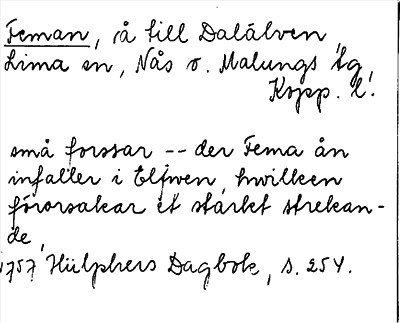 Feman, å till Dalälven,
Lima sn, Nås o. Malungs tg,
Kopp. l.
små forssar -- der Fema ån
infaller i Elfwen, hwilken
förorsakar et starkt strekan-
de,
1757 Hülphers Dagbok, s. 254.